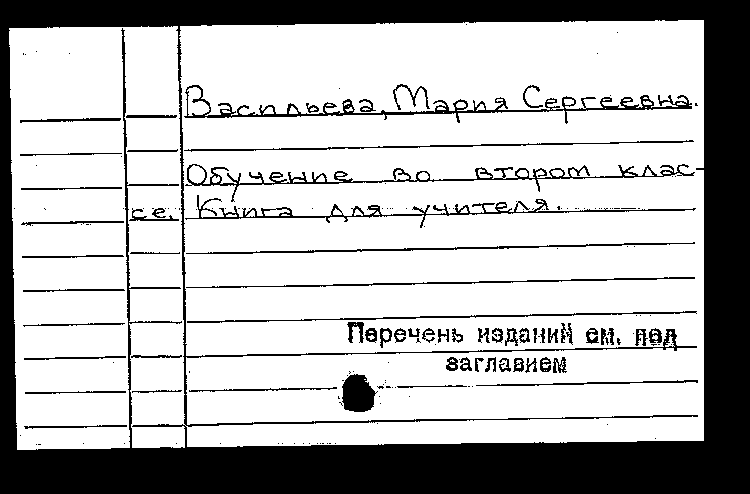 Васильева, Мария Сергеевна.
Обучение во втором клас-
се. Книга для учителя.
Перечень изданий см. под
заглавием